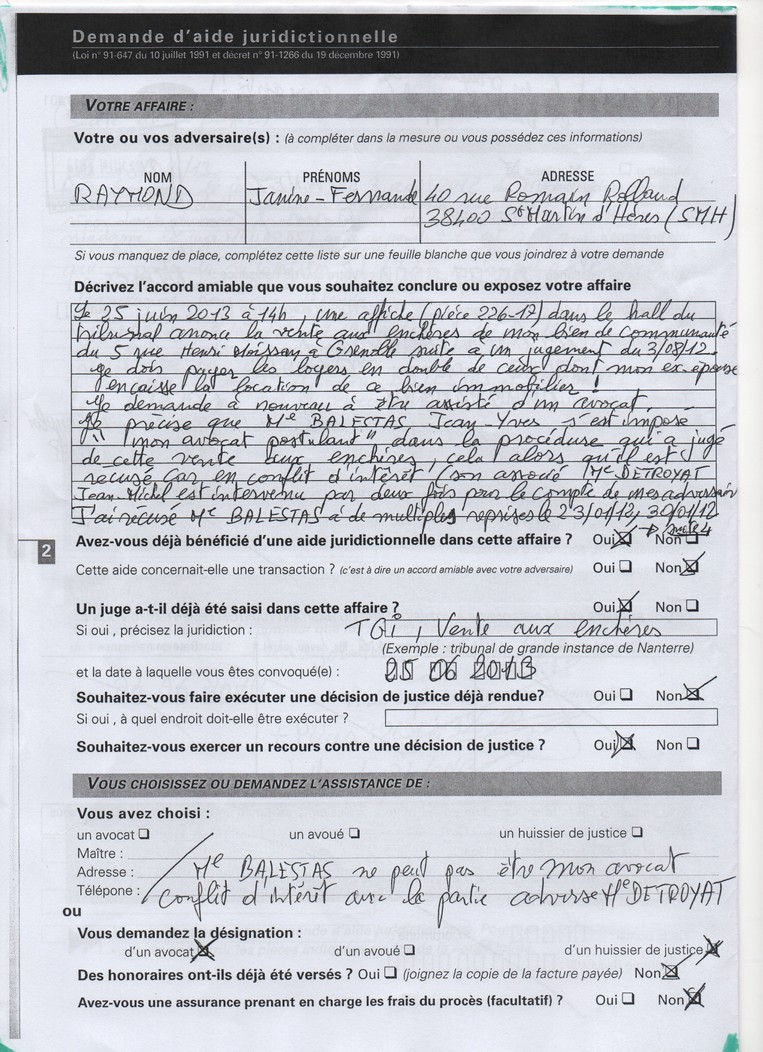 Demande d'aide juridictionnelle
(Loi n° 91-647 du 10 juillet 1991 et décret n° 91-1266 du 19 décembre 1991)
VOTRE AFFAIRE :
Votre ou vos adversaire(s) : (à compléter dans la mesure ou vous possédez ces informations)
NOM PRÉNOMS ADRESSE
RAYMOND Janine-Fernande 40 rue Romain Rolland
38400 St Martin d'Hères (SMH)
Si vous manquez de place, complétez cette liste sur une feuille blanche que vous joindrez à votre demande
Décrivez l'accord amiable que vous souhaitez conclure ou exposez votre affaire
Le 25 juin 2013 à 14h, une affiche (pièce 226-17) dans le hall du
tribunal anonce la vente aux enchères de mon bien de Communauté
du 5 rue Henri Moissan à Grenoble suite a un jugement du 3/08/12.
Je dois payer les loyers en double de ceux dont mon ex épouse
encaisse la location de ce bien immobilier !
Je demande à nouveau à être assisté d'un avocat.
Je précise que Me BALESTAS Jean-Yves s'est imposé
"mon avocat postulant" dans la procédure qui a jugé
de cette vente aux enchères, cela alors qu'il est
recusé car en conflit d'intérêt (son associé Me DETROYAT
Jean-Michel est intervenu par deux fois pour le compte de mes adversair
J'ai récusé Me BALESTAS à de multiples reprises le 23/01/12, 30/01/12
→ suite 4
2
Avez-vous déjà bénéficié d'une aide juridictionnelle dans cette affaire ? Oui ☒ Non ☐
Cette aide concernait-elle une transaction ? (c'est à dire un accord amiable avec votre adversaire) Oui ☐ Non ☒
Un juge a-t-il déjà été saisi dans cette affaire ? Oui ☒ Non ☐
Si oui, précisez la juridiction : TGI, Vente aux enchères
(Exemple : tribunal de grande instance de Nanterre)
et la date à laquelle vous êtes convoqué(e) : 25 06 2013
Souhaitez-vous faire exécuter une décision de justice déjà rendue? Oui ☐ Non ☒
Si oui , à quel endroit doit-elle être exécuter ?
Souhaitez-vous exercer un recours contre une décision de justice ? Oui ☒ Non ☐
VOUS CHOISISSEZ OU DEMANDEZ L'ASSISTANCE DE :
Vous avez choisi :
un avocat ☐ un avoué ☐ un huissier de justice ☐
Maître :
Adresse : Me BALESTAS ne peut pas être mon avocat
Télépone : Conflit d'intérêt avec la partie adverse Me DETROYAT
ou
Vous demandez la désignation :
d'un avocat ☒ d'un avoué ☐ d'un huissier de justice ☒
Des honoraires ont-ils déjà été versés ? Oui ☐ (joignez la copie de la facture payée) Non ☒
Avez-vous une assurance prenant en charge les frais du procès (facultatif) ? Oui ☐ Non ☒